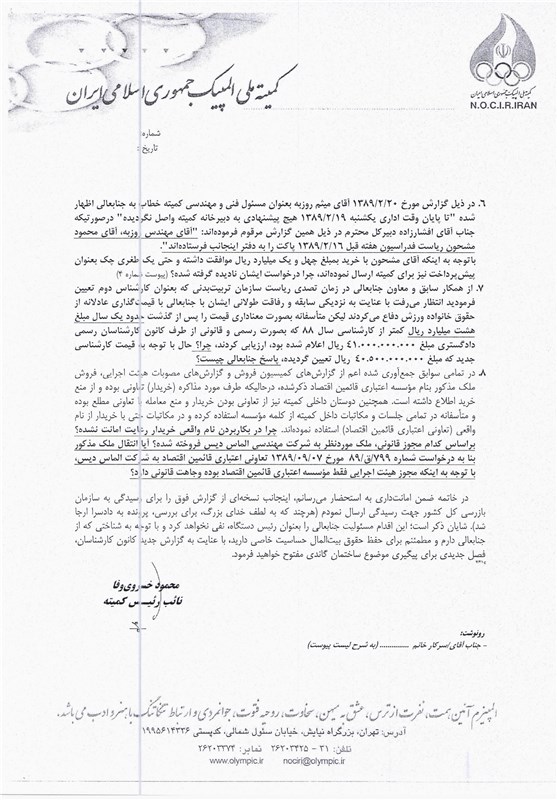 کمیته ملی المپیک جمهوری اسلامی ایران
کمیته ملی المپیک جمهوری اسلامی ایران
N.O.C.I.R.IRAN
شماره
تاریخ :
۶. در ذیل گزارش مورخ ۱۳۸۹/۲/۲۰ آقای میثم روزبه بعنوان مسئول فنی و مهندسی کمیته خطاب به جنابعالی اظهار
شده "تا پایان وقت اداری یکشنبه ۱۳۸۹/۲/۱۹ هیچ پیشنهادی به دبیرخانه کمیته واصل نگردیده" درصورتیکه
جناب آقای افشارزاده دبیرکل محترم در ذیل همین گزارش مرقوم فرموده‌اند: "آقای مهندس روزبه، آقای محمود
مشحون ریاست فدراسیون هفته قبل ۱۳۸۹/۲/۱۶ پاکت را به دفتر اینجانب فرستاده‌اند".
باتوجه به اینکه آقای مشحون با خرید بمبلغ چهل و یک میلیارد ریال موافقت داشته و حتی یک طغری چک بعنوان
پیش‌پرداخت نیز برای کمیته ارسال نموده‌اند، چرا درخواست ایشان نادیده گرفته شده؟ (پیوست شماره ۴)
۷. از همکار سابق و معاون جنابعالی در زمان تصدی ریاست سازمان تربیت‌بدنی که بعنوان کارشناس دوم تعیین
فرمودید انتظار می‌رفت با عنایت به نزدیکی سابقه و رفاقت طولانی ایشان با جنابعالی با قیمت‌گذاری عادلانه از
حقوق خانواده ورزش دفاع می‌کردند لیکن متأسفانه بصورت معناداری قیمت را پس از گذشت حدود یک سال مبلغ
هشت میلیارد ریال کمتر از کارشناسی سال ۸۸ که بصورت رسمی و قانونی از طرف کانون کارشناسان رسمی
دادگستری مبلغ ۴۱.۰۰۰.۰۰۰.۰۰۰ ریال اعلام شده بود، ارزیابی کردند، چرا؟ حال با توجه به قیمت کارشناسی
جدید که مبلغ ۴۰.۵۰۰.۰۰۰.۰۰۰ ریال تعیین گردیده، پاسخ جنابعالی چیست؟
۸. در تمامی سوابق جمع‌آوری شده اعم از گزارش‌های کمیسیون فروش و گزارش‌های مصوبات هیئت اجرایی، فروش
ملک مذکور بنام مؤسسه اعتباری قائمین اقتصاد ذکرشده، درحالیکه طرف مورد مذاکره (خریدار) تعاونی بوده و از منع
خرید اطلاع داشته است. همچنین دوستان داخلی کمیته نیز از تعاونی بودن خریدار و منع معامله با تعاونی مطلع بوده
و متأسفانه در تمامی جلسات و مکاتبات داخل کمیته از کلمه مؤسسه استفاده کرده و در مکاتبات حتی با خریدار از نام
واقعی (تعاونی اعتباری قائمین اقتصاد) استفاده نموده‌اند. چرا در بکاربردن نام واقعی خریدار رعایت امانت نشده؟
براساس کدام مجوز قانونی، ملک موردنظر به شرکت مهندسی الماس دیس فروخته شده؟ آیا انتقال ملک مذکور
بنا به درخواست شماره ۷۹۹/ق/۸۹ مورخ ۱۳۸۹/۰۹/۰۷ تعاونی اعتباری قائمین اقتصاد به شرکت الماس دیس،
با توجه به اینکه مجوز هیئت اجرایی فقط مؤسسه اعتباری قائمین اقتصاد بوده وجاهت قانونی دارد؟
در خاتمه ضمن امانت‌داری به استحضار می‌رسانم، اینجانب نسخه‌ای از گزارش فوق را برای رسیدگی به سازمان
بازرسی کل کشور جهت رسیدگی ارسال نمودم (هرچند که به لطف خدای بزرگ، برای بررسی، پرونده به دادسرا ارجاع
شد). شایان ذکر است؛ این اقدام مسئولیت جنابعالی را بعنوان رئیس دستگاه، نفی نخواهد کرد و با توجه به شناختی که از
جنابعالی دارم و مطمئنم برای حفظ حقوق بیت‌المال حساسیت خاصی دارید، با عنایت به گزارش جدید کانون کارشناسان،
فصل جدیدی برای پیگیری موضوع ساختمان گاندی مفتوح خواهید فرمود.
محمود خسروی‌وفا
نائب رئیس کمیته
رونوشت:
- جناب آقای/سرکار خانم .............. (به شرح لیست پیوست)
المپیزم آئین همت، نفرت از ترس، عشق به میهن، سخاوت، روحیه فتوت، جوانمردی و ارتباط تنگاتنگ با هنر و ادب می‌باشد.
آدرس: تهران، بزرگراه نیایش، خیابان سئول شمالی، کدپستی ۱۹۹۵۶۱۴۳۳۶
تلفن: ۳۱ - ۲۶۲۰۳۳۲۵ نمابر: ۲۶۲۰۳۳۷۴
www.olympic.ir nociri@olympic.ir